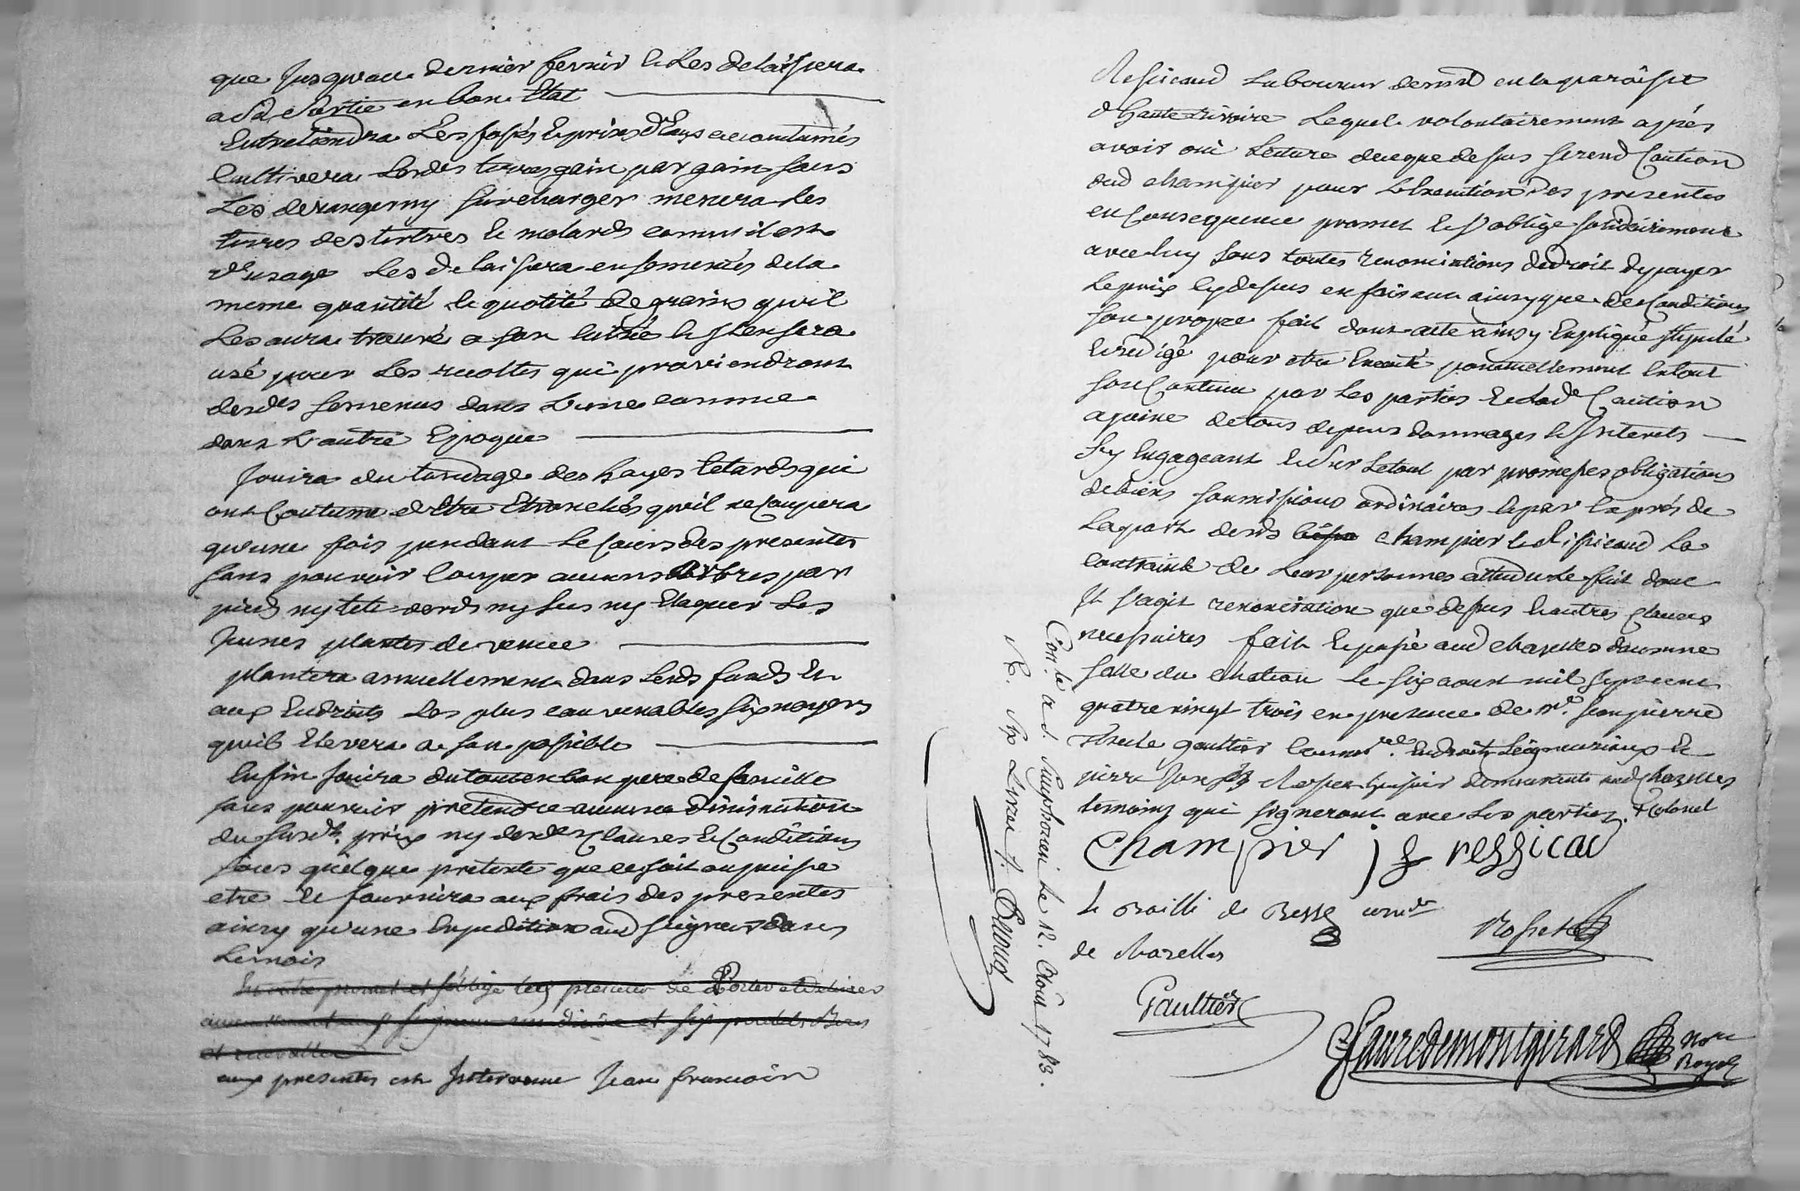 que Jusqu'au dernier fevrier & Les delaissera
a Sa Sortie en bon Etat
Entretiendra Les fossés & prises d'Eaux accoutumés
Cultivera Lesdes terres gain par gain sans
Les deranger ny surcharger menera les
terres des tertres & molards comm'il est
d'usage Les delaissera ensemencés de la
meme quantité & quotité de grains qu'il
Les aura trouvé a son Entrée & J En sera
usé pour Les recoltes qui proviendront
desdes semences dans L'une comme
dans L'autre Epoque
Jouira du tondage des hayes & etards qui
ont Coutume d'Etre Etronchés qu'il ne Coupera
qu'une fois pendant le Cours des presentes
sans pouvoir Couper aucuns arbres par
pied ny tete verds ny secs ny Elaguer Les
Jeunes plantes de venue
plantera annuellement dans Lesds fonds &
aux Endroits Les plus convenables six noyers
qu'il Elevera a son possible
Enfin Jouira du tout en bon pere de famille
sans pouvoir pretendre aucune diminution
du susdt prix ny desdes Clauses & Conditions
sous quelque pretexte que ce soit ou puisse
etre & fournira aux frais des presentes
ainsy qu'une Expedition aud seigneur dans
Le mois
En outre promet et s'oblige led preneur de Porter et
et
aux presentes est Intervenu Jean francois
Ressicaud Laboureur demt en la paroisse
d'hauterivoire Lequel volontairement après
avoir oui Lecture de ceque dessus se rend Caution
dud champier pour L'Execution des presentes
en Consequence promet & s'oblige solidairement
avec luy sous toutes renonciations de droit de payer
Le prix cy dessus en faisant ainsy que des Conditions
son propre fait dont acte ainsy Expliqué stipulé
& redigé pour etre Executé ponctuellement En tout
son Contenu par Les parties & lade Caution
a peine de tous depens dommages & Interets
s'y Engageant & sur Letout par promesses obligations
de biens soumissions ordinaires & par Exprès de
La part desds champier & Ressicaud La
contrainte de Leur personnes attendu Le fait dont
Il s'agit renonciation que dessus & autres Clauses
necessaires fait & passé aud chazelles dans une
salle du chateau Le six aout mil sept cent
quatre vingt trois en presence de me Jean pierre
gaultier Commre En droits seigneuriaux &
pierre Joseph Rosset huissier demeurants aud chazelles
temoins qui signeront avec Les parties
Champier J f ressicau
Le Bailli de Besse comdr
de chazelles
Rosset
Gaultier
Fauredemontgirard Nore
Royal
Con.le a St. Simphorien le 12. Aout 1783.
R. Six Livres s. Decour